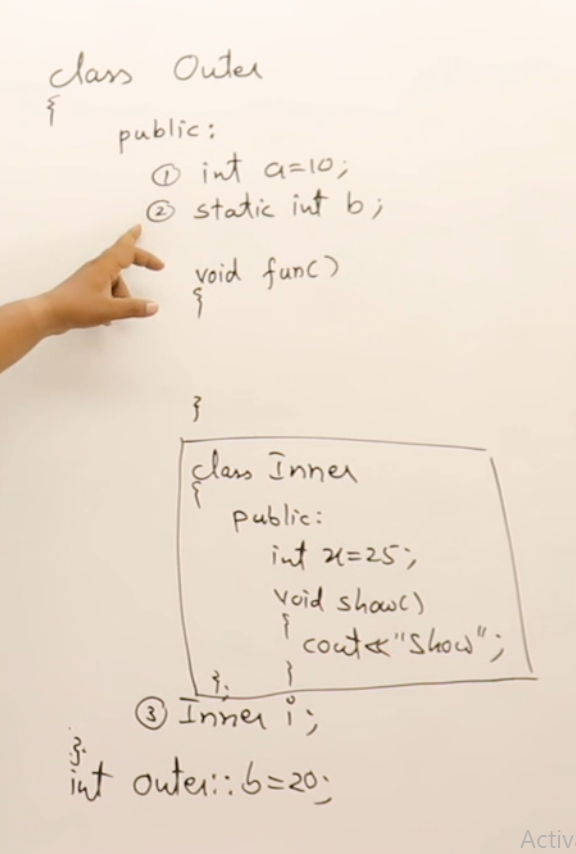 class Outer
{
public:
① int a=10;
② static int b;
void fun()
{
}
class Inner
{
public:
int x=25;
void show()
{
cout<<"Show";
}
};
③ Inner i;
};
int outer::b=20;
Activ